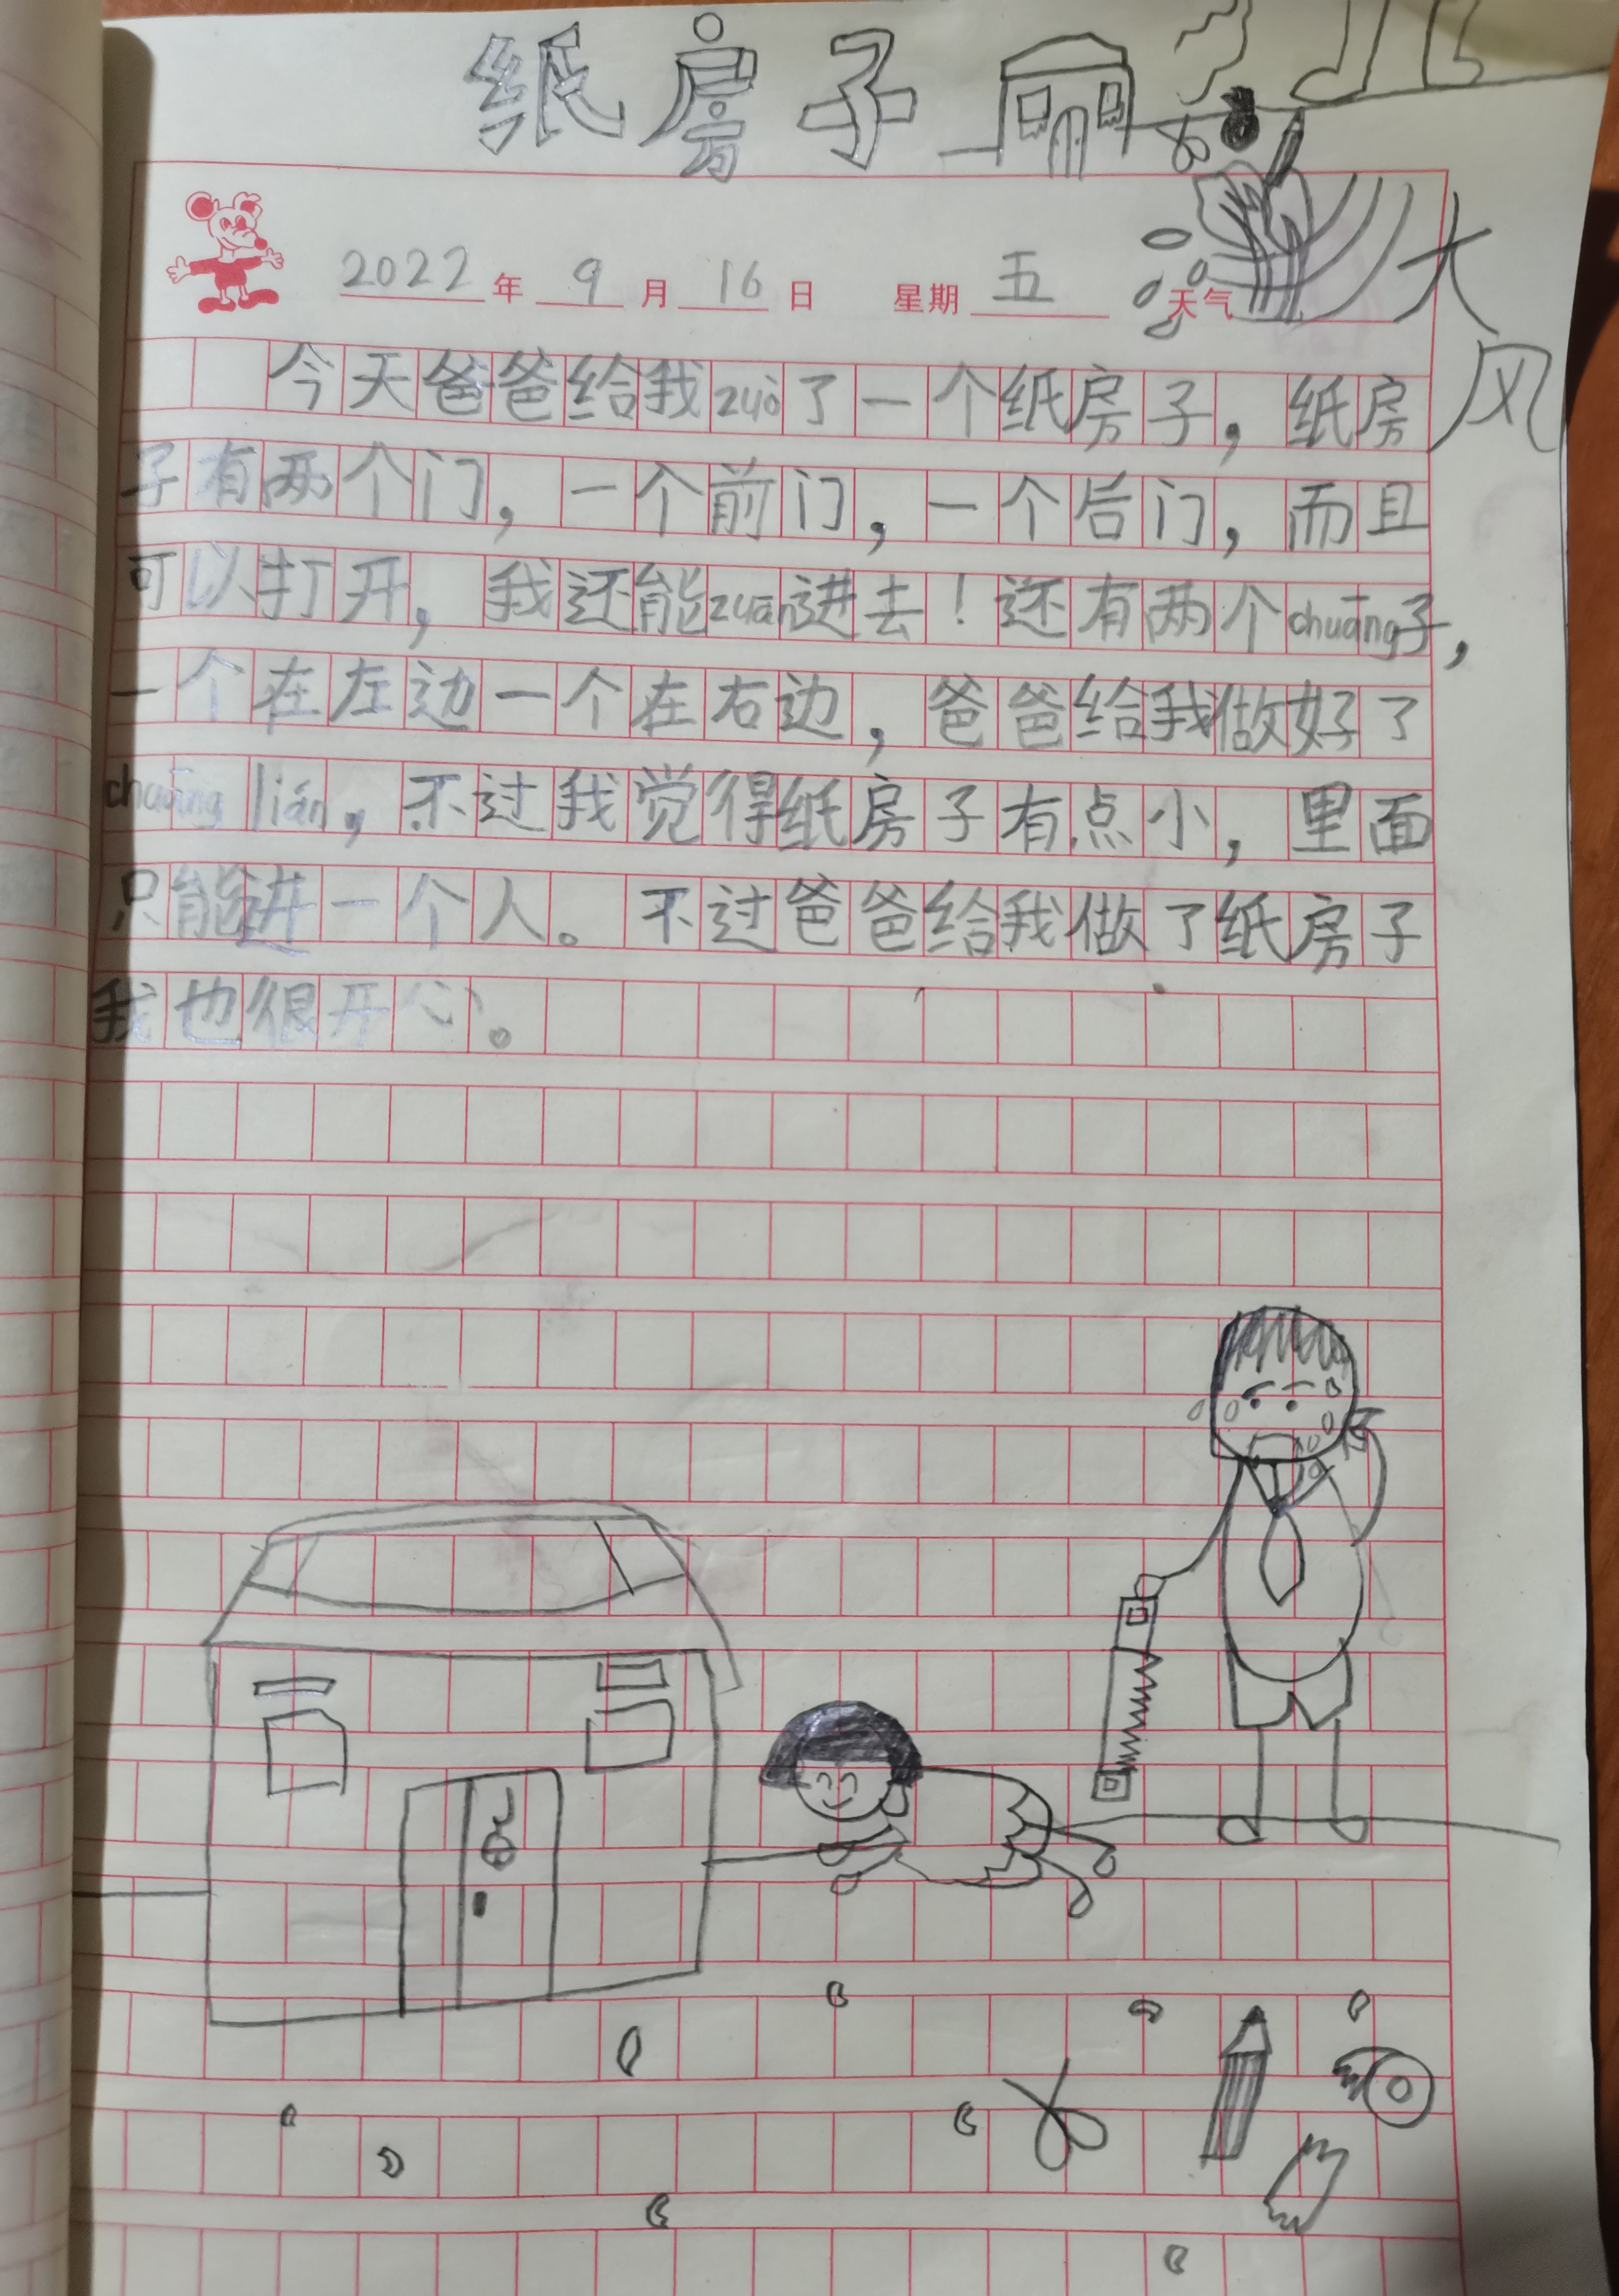 纸房子
2022年9月16日 星期五 天气 大风
今天爸爸给我zuò了一个纸房子，纸房
子有两个门，一个前门，一个后门，而且
可以打开，我还能zuān进去！还有两个chuāng子，
一个在左边一个在右边，爸爸给我做好了
chuāng lián，不过我觉得纸房子有点小，里面
只能进一个人。不过爸爸给我做了纸房子
我也很开心。